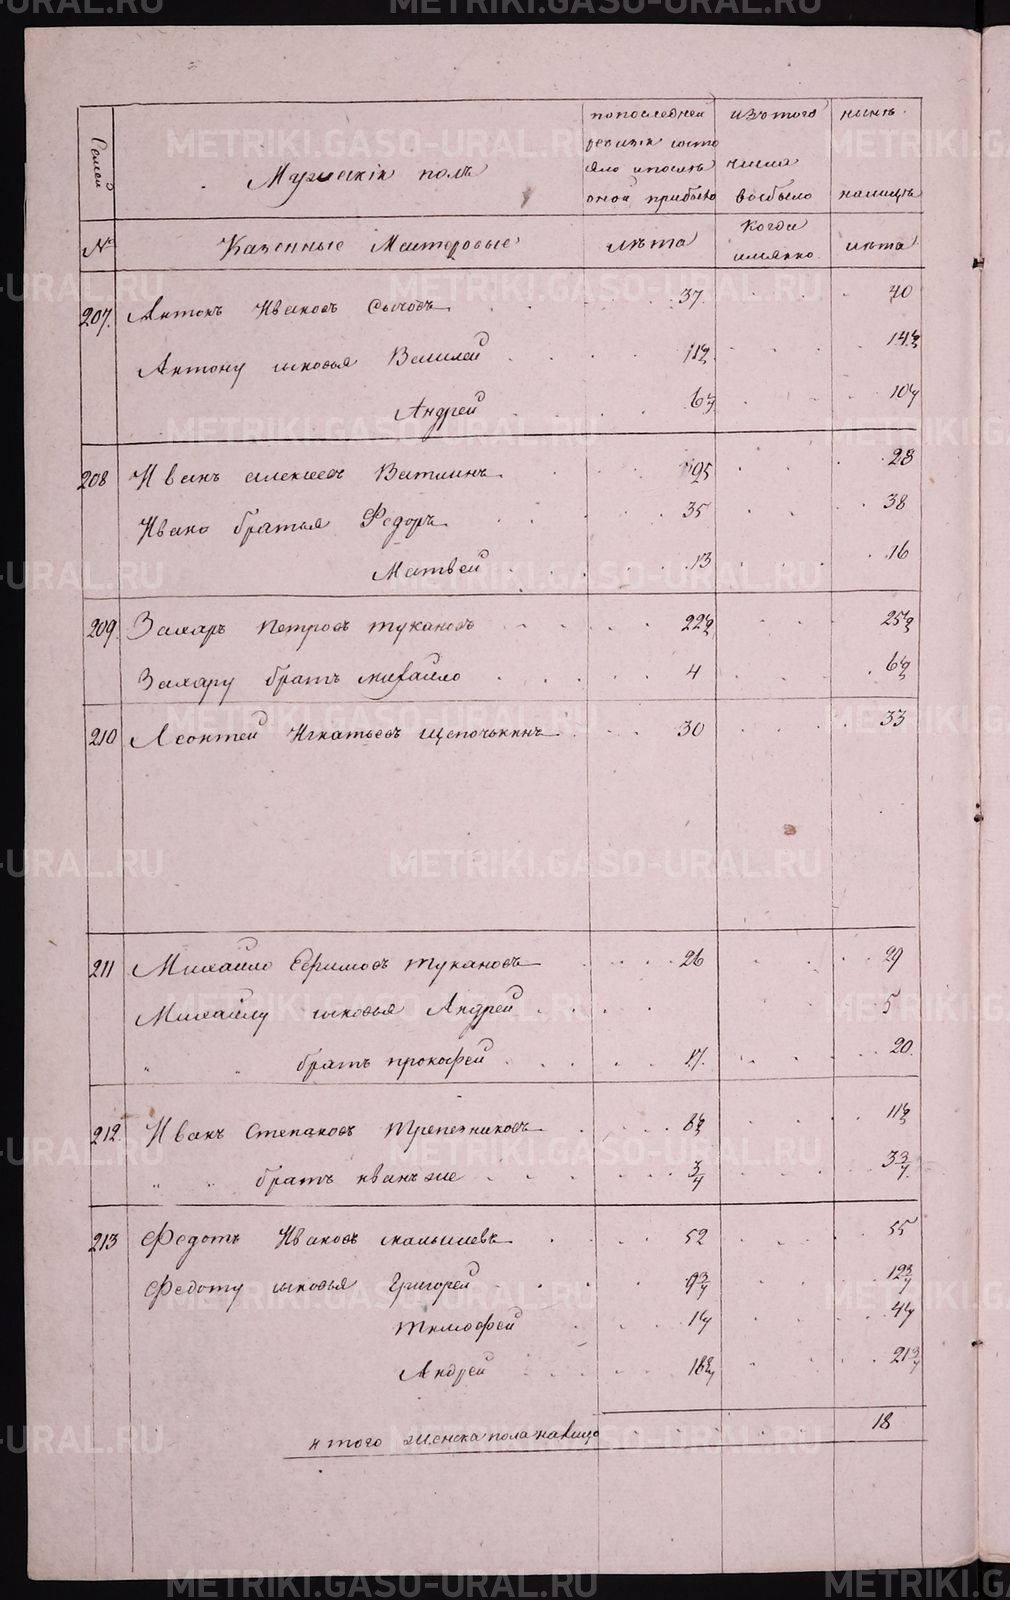 METRIKI.GASO-URAL.RU
Семей
Мужескiй полъ
по последней
ревизiи состо
яло и после
оной прибыло
изъ того
числа
выбыло
ныне
налицо
№
Казенные Мастеровые
лѣта
Когда
имянно
лѣта
207. Антонъ Ивановъ Сычовъ 37 40
Антону сыновья Василей 11½ 14½
Андрей 6¼ 10¼
208 Иванъ алексеевъ Ватлинъ 28
Ивана братья Федоръ 35 38
Матвей 13 16
209. Захаръ петровъ тукановъ 22½ 25½
Захару братъ михайло 4 6½
210 Леонтей Игнатьевъ щепочькинъ 30 33
211 Михайло Ефимовъ тукановъ 26 29
Михайлу сыновья Андрей 5
" " братъ прокофей 17. 20.
212. Иванъ Степановъ трепезниковъ 8½ 11½
" " братъ иванъ же ¾ 3¾
213 Федотъ Ивановъ малышевъ 52 55
Федоту сыновья Григорей 9¾ 12¾
тимофей 1¼ 4¼
Андрей 18¾ 21¾
итого женска пола налицо 18